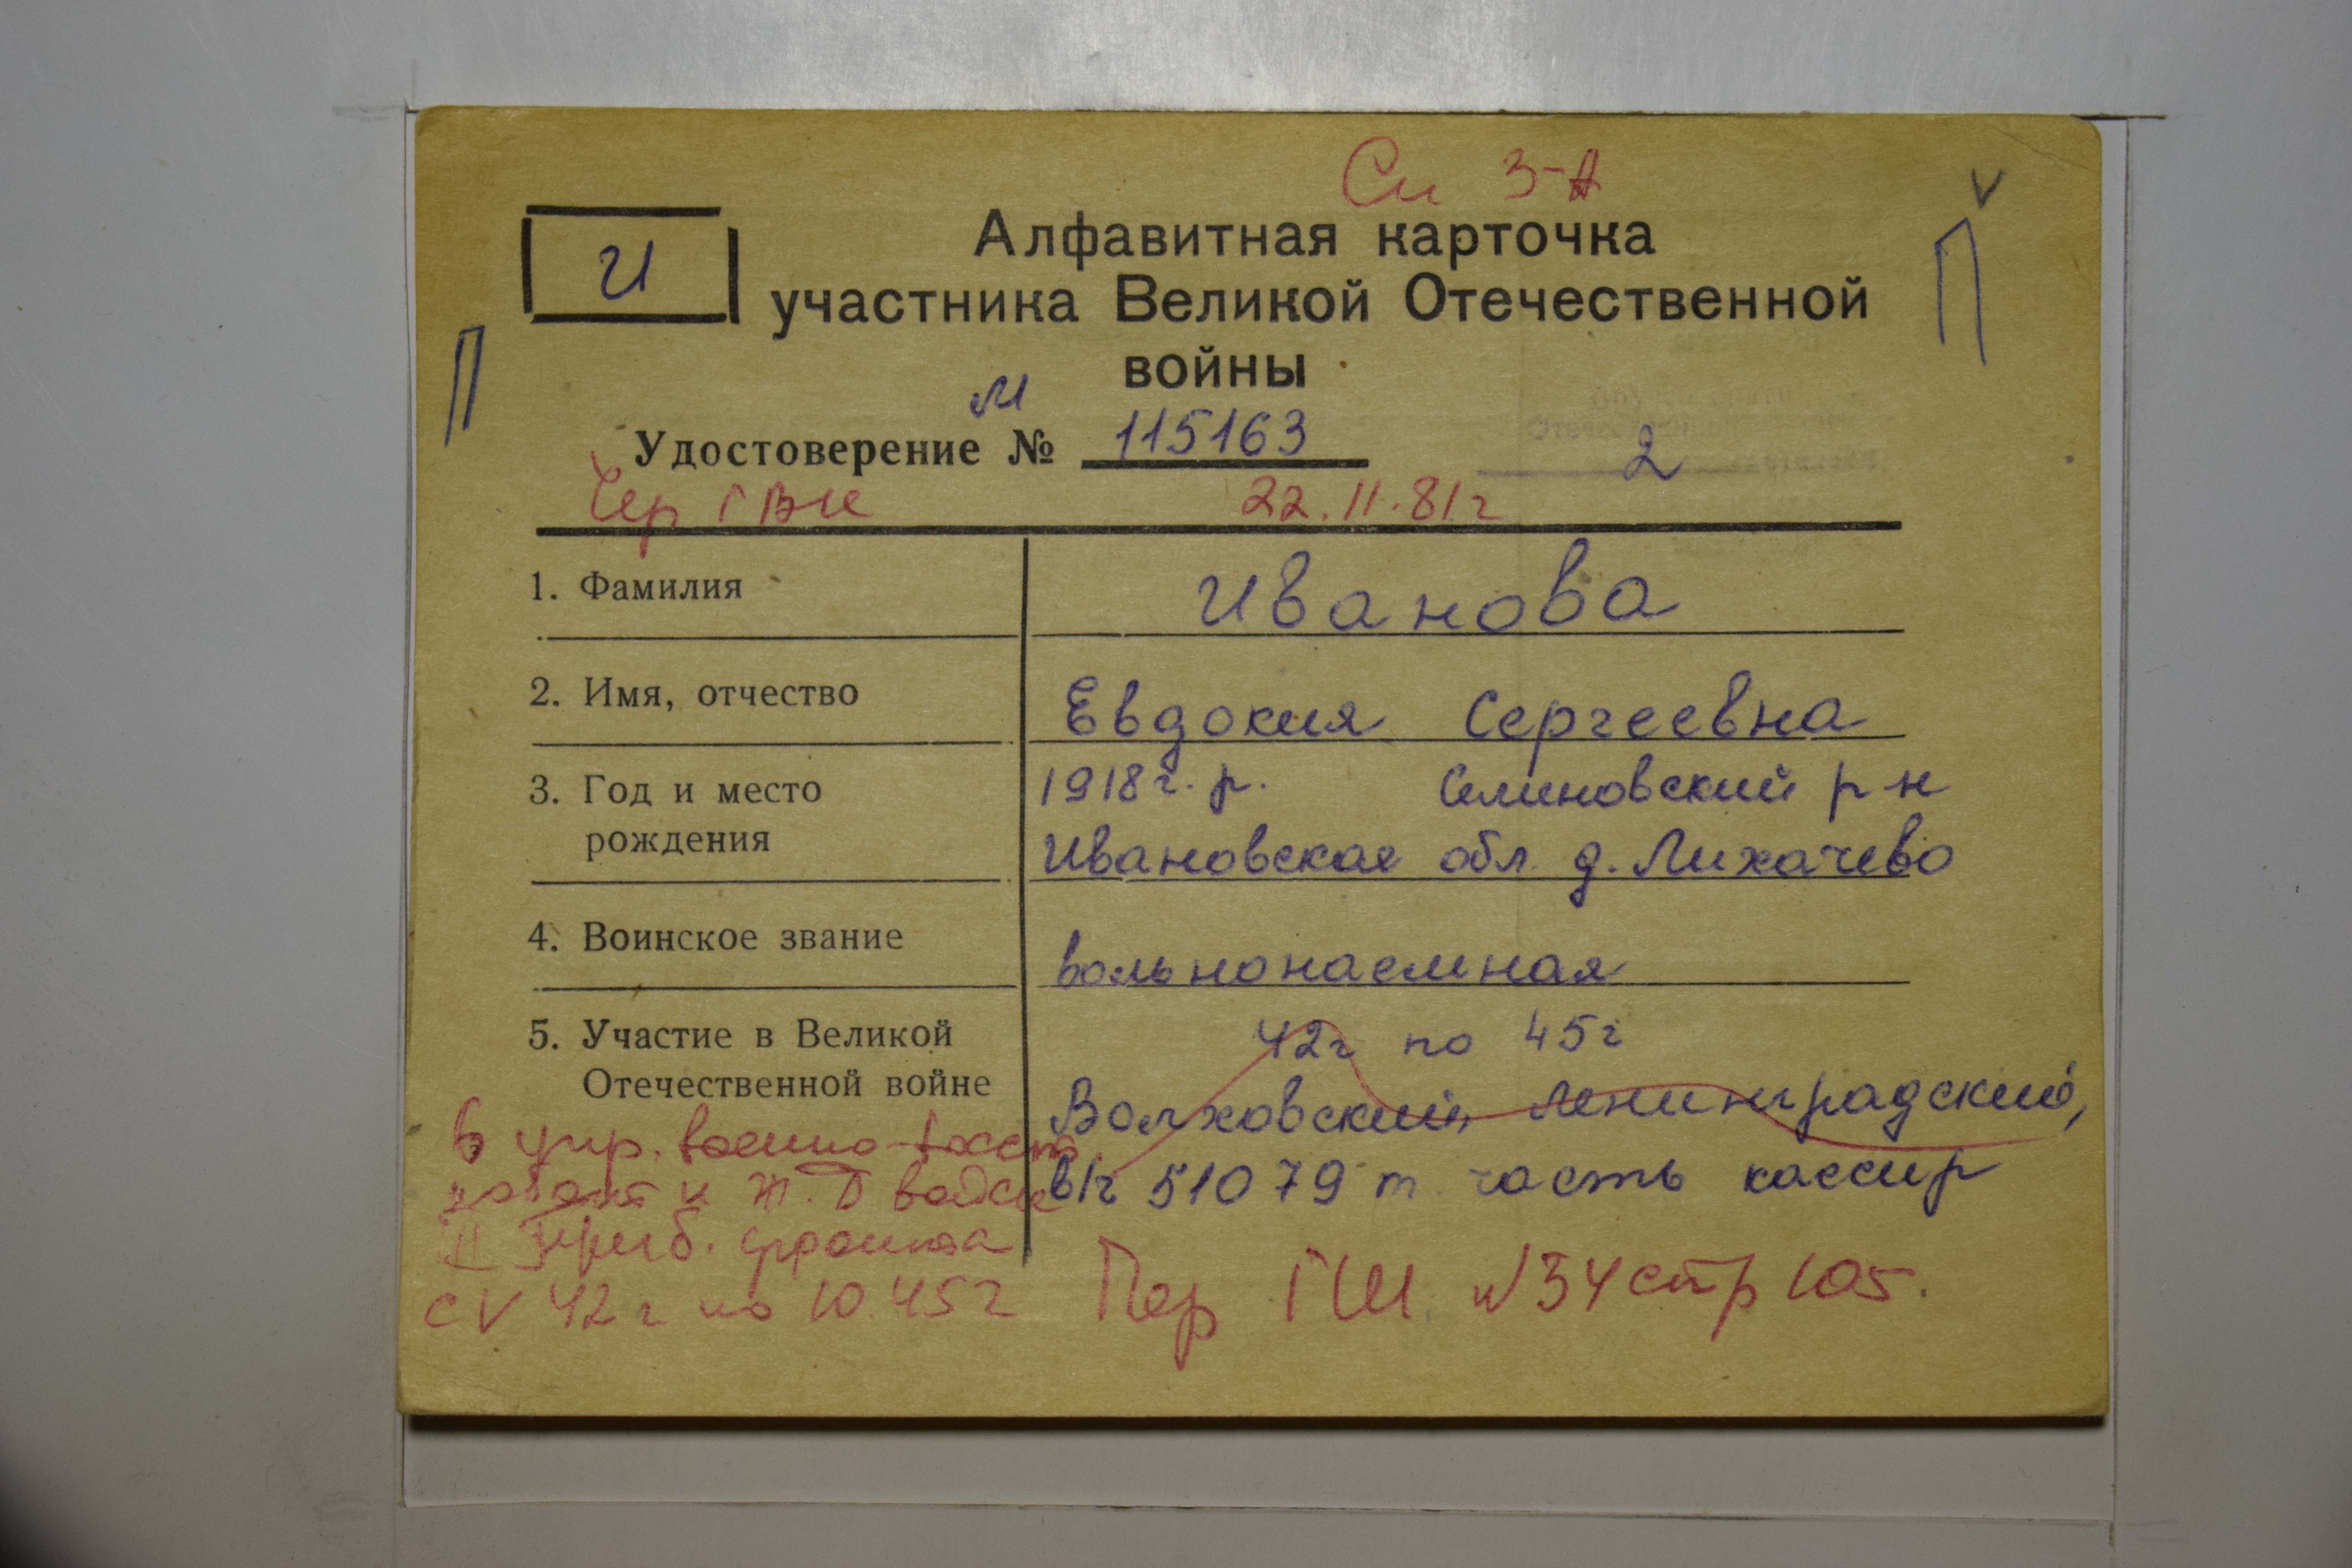 Си 3-А
И
Алфавитная карточка
участника Великой Отечественной
войны
П
П
М
Удостоверение № 115163
2
Чер ГВК 22.11.81г
1. Фамилия Иванова
2. Имя, отчество Евдокия Сергеевна
3. Год и место 1918г. р. Селиновский р-н
рождения Ивановская обл. д. Лихачево
4. Воинское звание вольнонаемная
5. Участие в Великой 42г по 45г
Отечественной войне Волховский, Ленинградский,
в упр. военно-восст
работ и Ж.Д войск в/ч 51079 т. часть кассир
II Приб. фронта
с V 42г по 10.45г Пер ГШ. №34 стр 105.